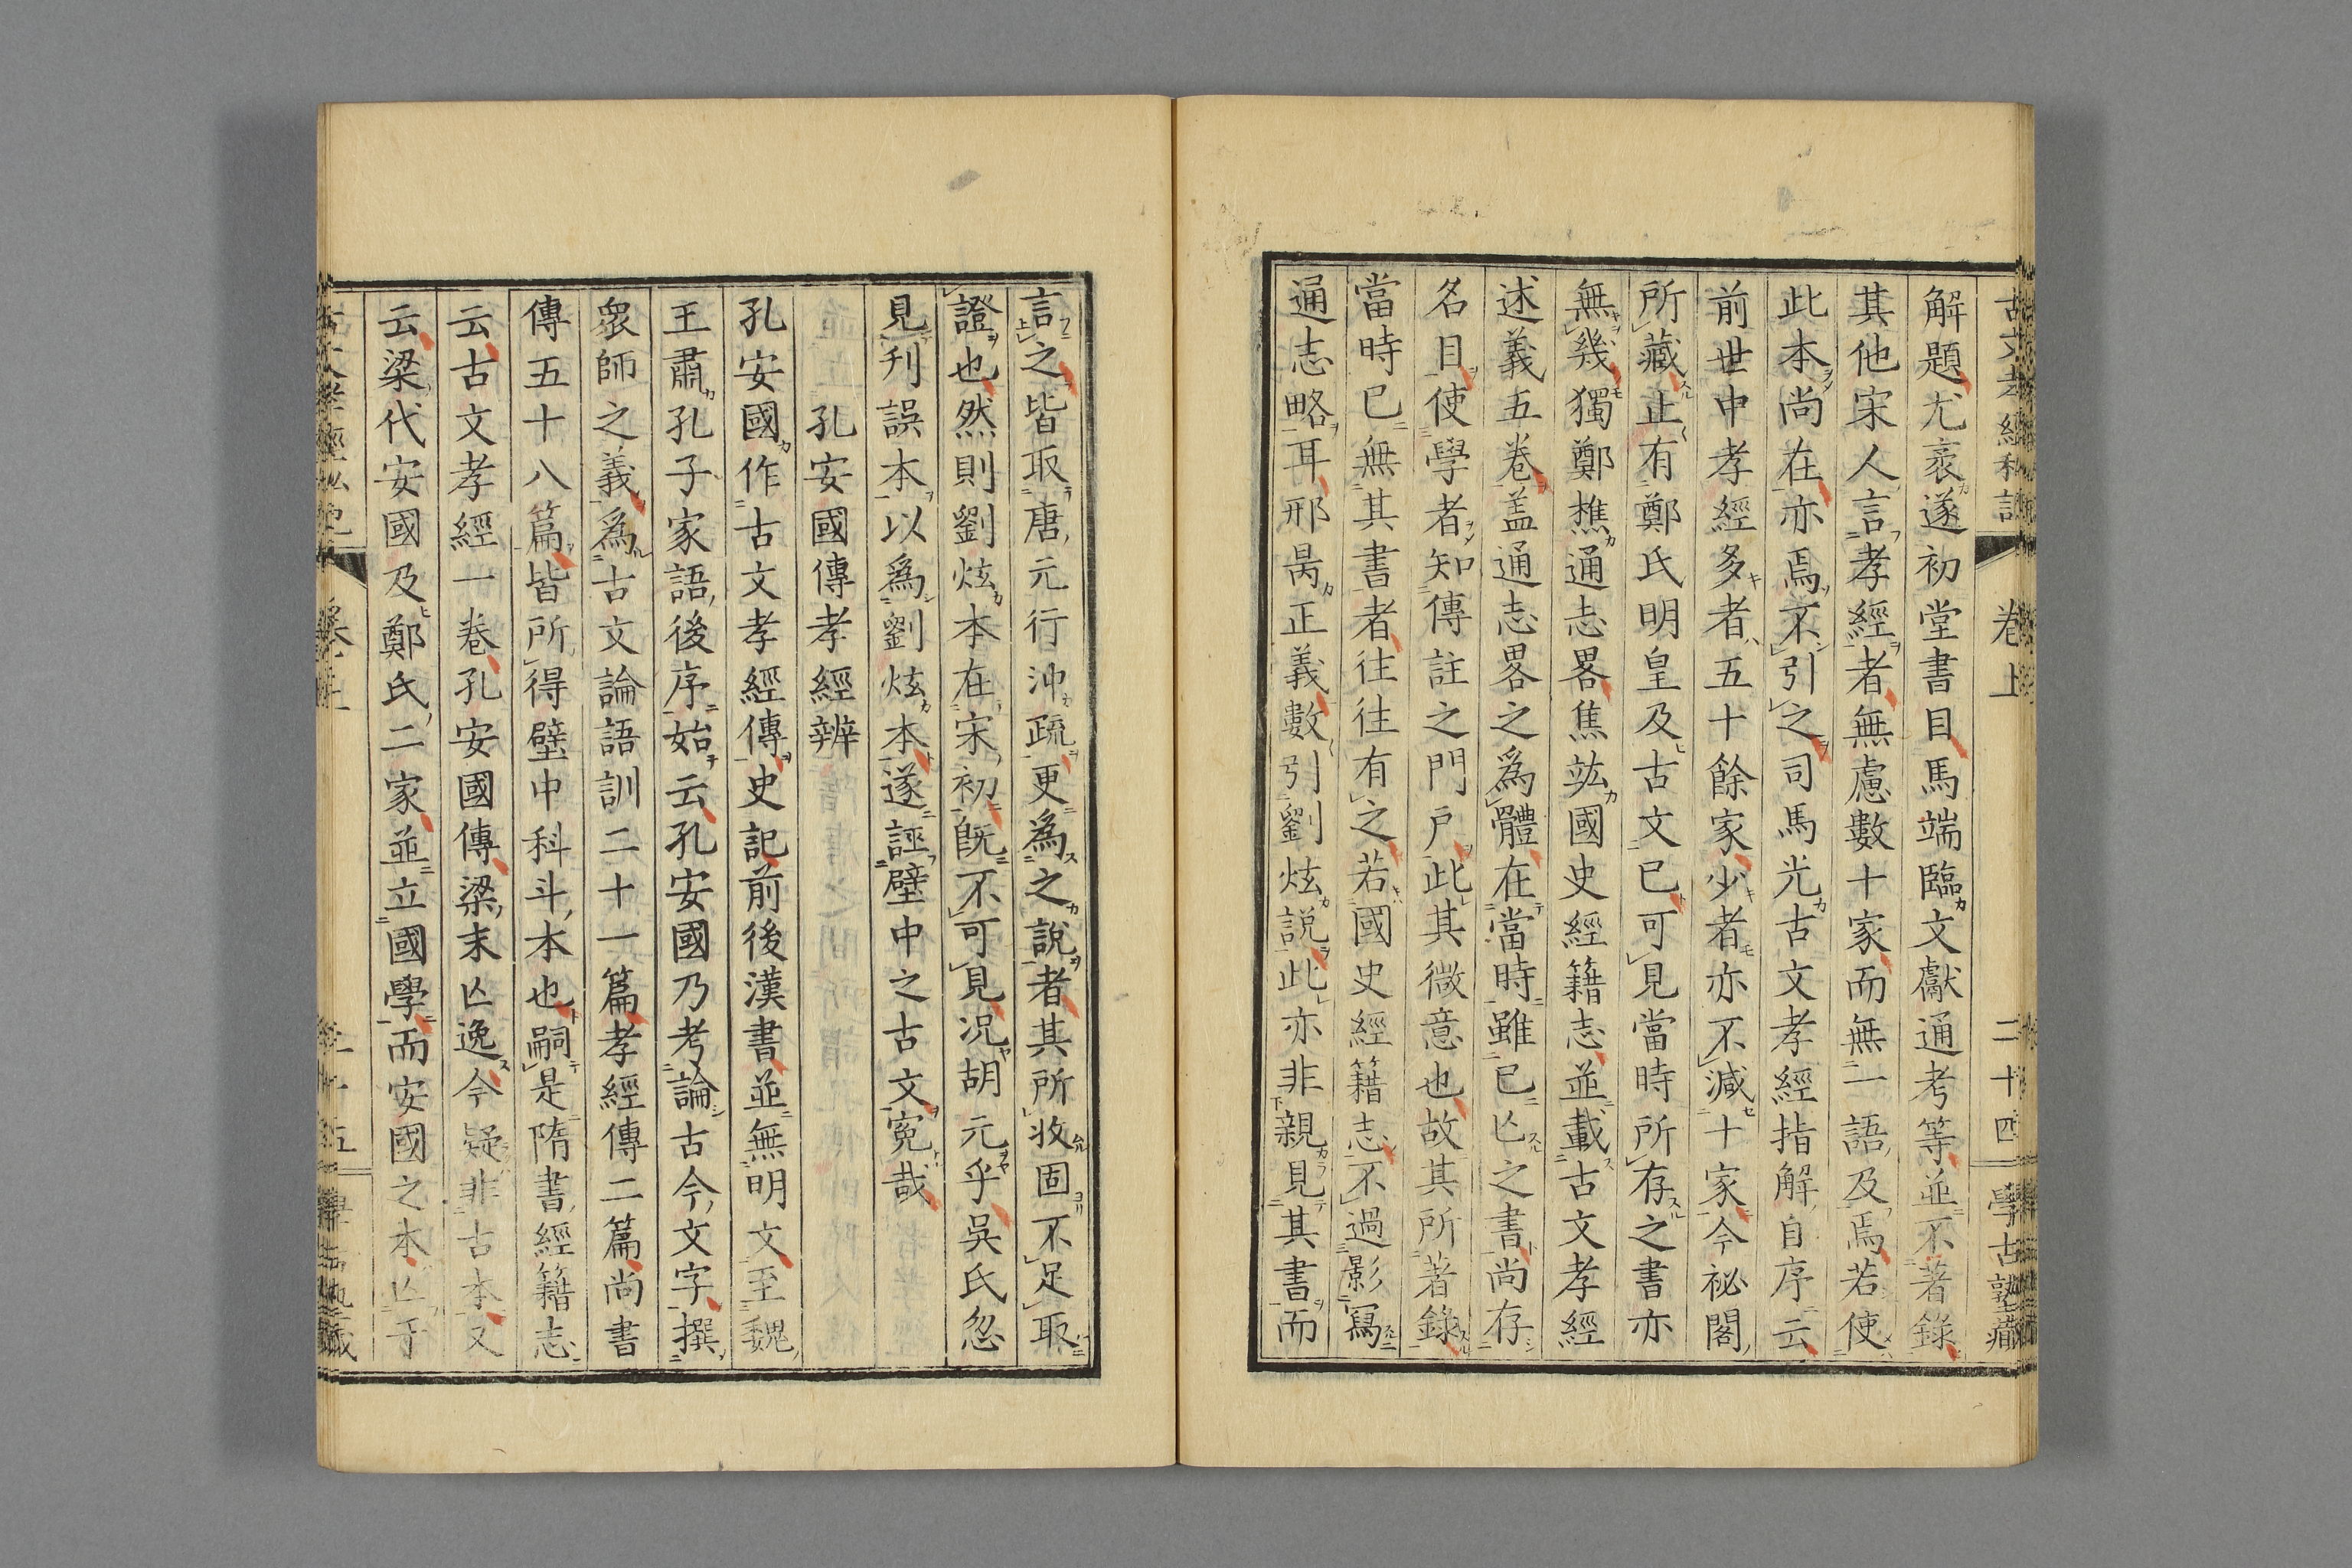 古文孝經私記 卷上 二十四 學古塾藏
解題尤袤遂初堂書目馬端臨文獻通考等並不著錄
其他宋人言孝經者無慮數十家而無一語及焉若使
此本尚在亦焉不引之司馬光古文孝經指解自序云
前世中孝經多者五十餘家少者亦不減十家今祕閣
所藏止有鄭氏明皇及古文已可見當時所存之書亦
無幾獨鄭樵通志畧焦竑國史經籍志並載古文孝經
述義五卷盖通志畧之爲體在當時雖已亾之書尚存
名目使學者知傳註之門戶此其微意也故其所著錄
當時已無其書者往往有之若國史經籍志不過影寫
通志略耳邢昺正義數引劉炫說此亦非親見其書而
言之皆取唐元行沖疏更爲之說者其所收固不足取
證也然則劉炫本在宋初既不可見況胡元乎吳氏忽
見刋誤本以爲劉炫本遂誣壁中之古文寃哉
孔安國傳孝經辨
孔安國作古文孝經傳史記前後漢書並無明文至魏
王肅孔子家語後序始云孔安國乃考論古今文字撰
衆師之義爲古文論語訓二十一篇孝經傳二篇尚書
傳五十八篇皆所得壁中科斗本也嗣是隋書經籍志
云古文孝經一卷孔安國傳梁末亾逸今疑非古本又
云梁代安國及鄭氏二家並立國學而安國之本亾于